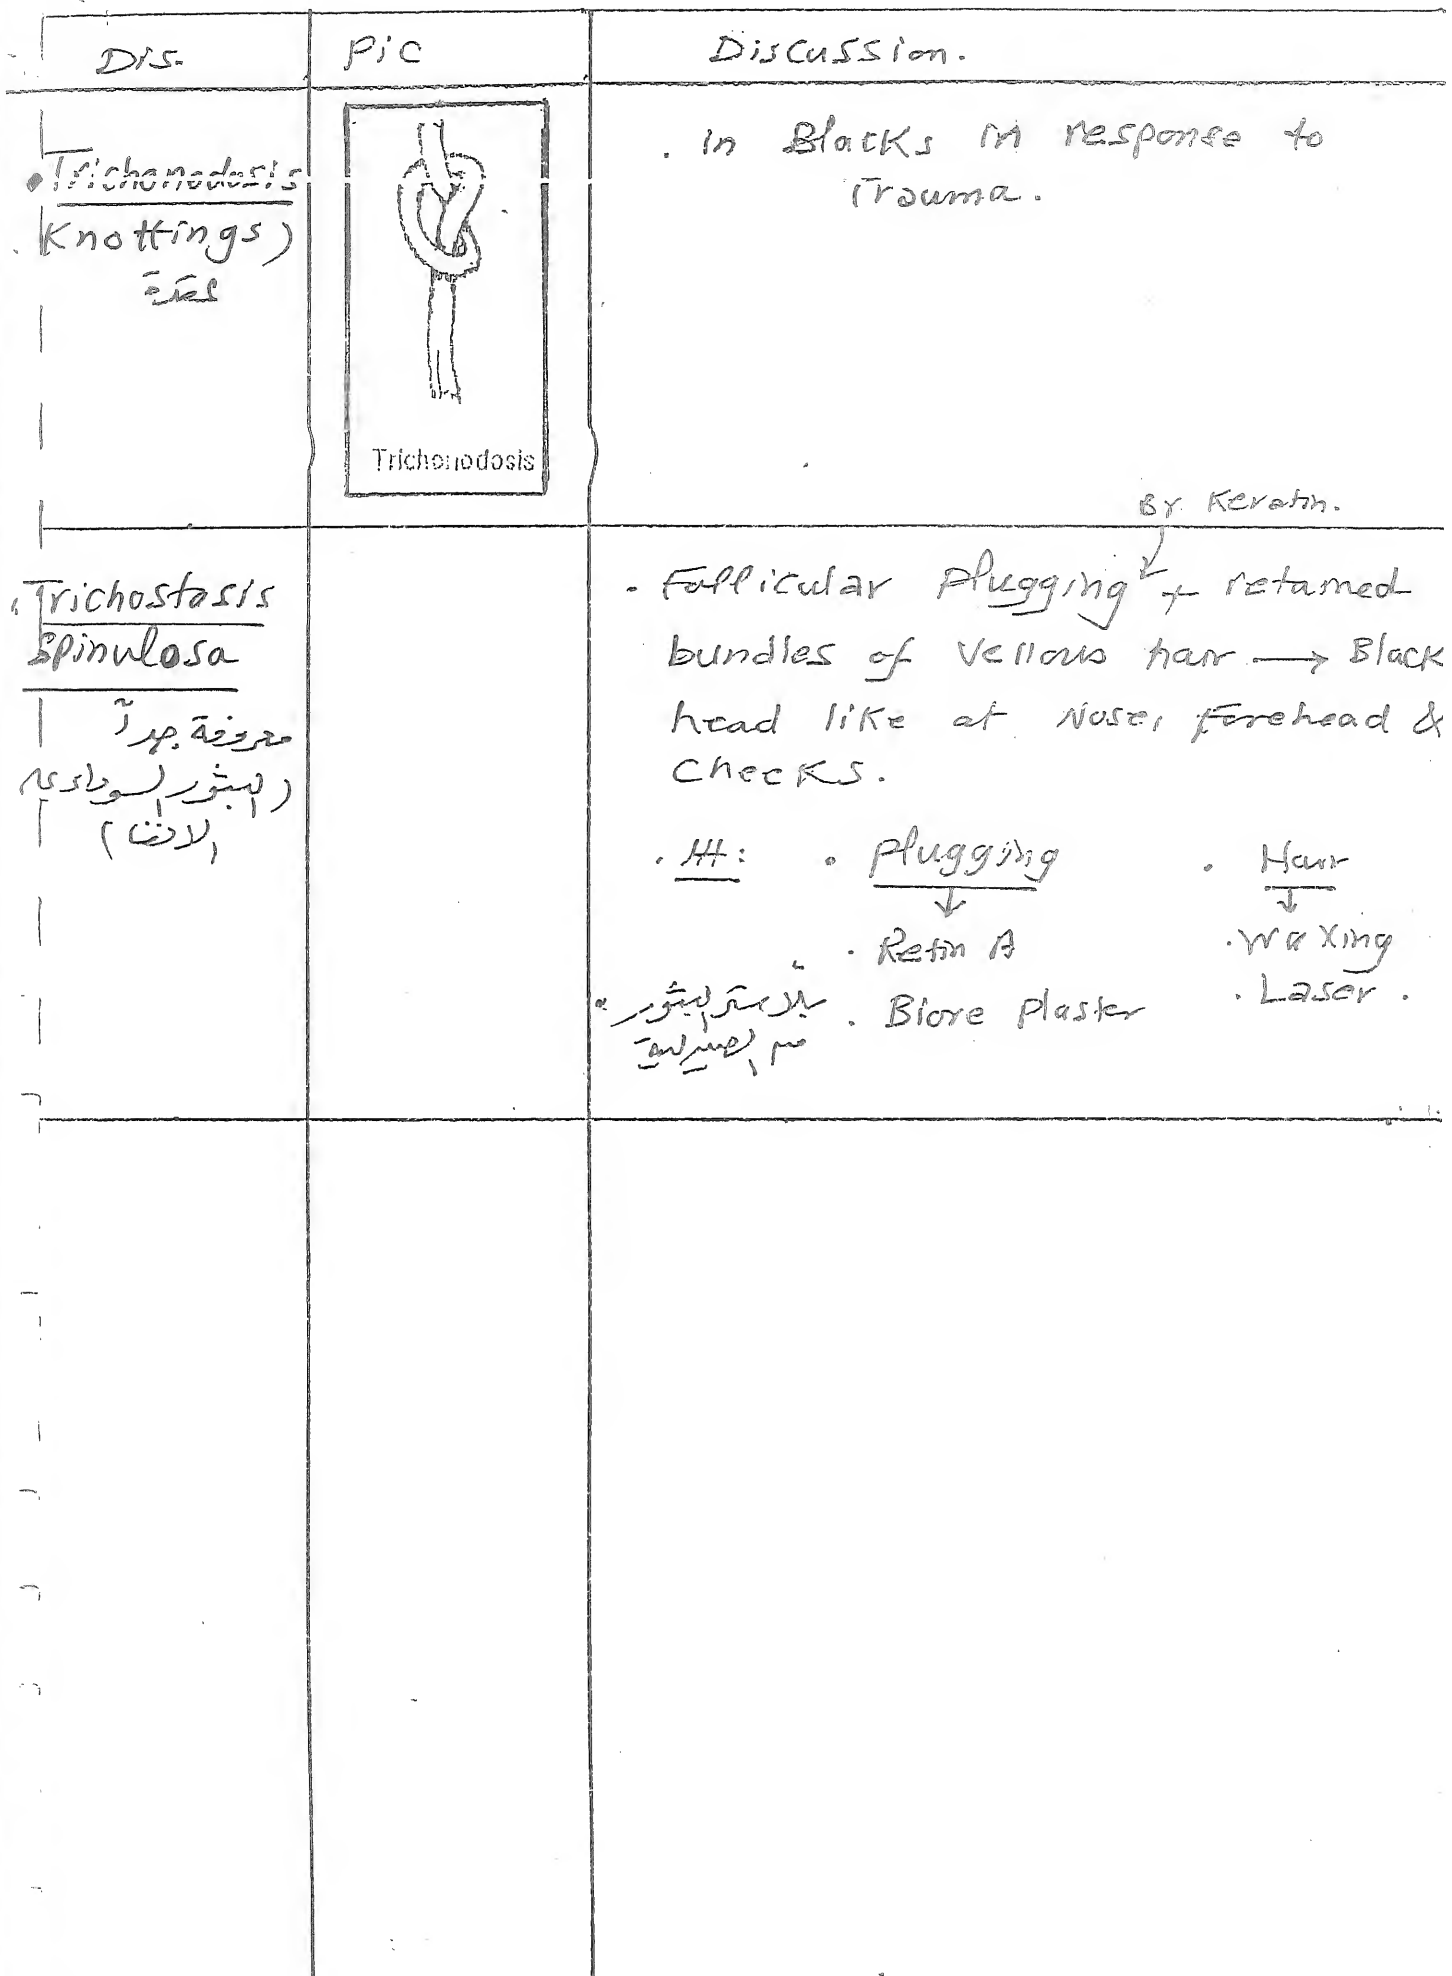 Dis. Pic Discussion.
• Trichonodosis
Knottings)
عقدة
Trichonodosis
. in Blacks in response to
Trauma.
By Keratin.
. Trichostasis
Spinulosa
معروفة جداً
(البثور السوداء
الانف)
. Follicular Plugging + retained
bundles of Vellous hair → Black
head like at Nose, Forehead &
Checks.
. ttt: . Plugging . Hair
↓ ↓
. Retin A . Waxing
. Biore Plaster . Laser .
بلاستر البثور
من الصيدلية